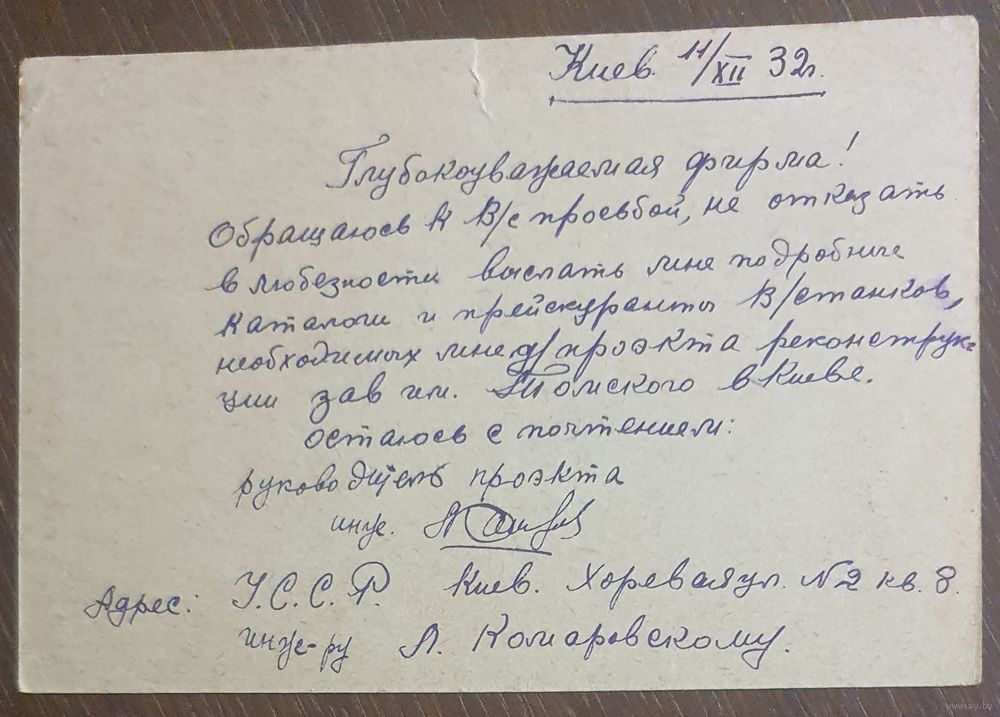 Киев. 11/XII 32г.
Глубокоуважаемая фирма!
Обращаюсь к В/с просьбой, не отказать
в любезности выслать мне подробные
каталоги и прейскуранты В/станков,
необходимых мне д/проэкта реконструк-
ции зав им. Томского в Киеве.
остаюсь с почтением:
руководитель проэкта
инж.
Адрес: У.С.С.Р. Киев. Хоревая ул. №2 кв. 8.
инже-ру Л. Комаровскому.
www.ay.by